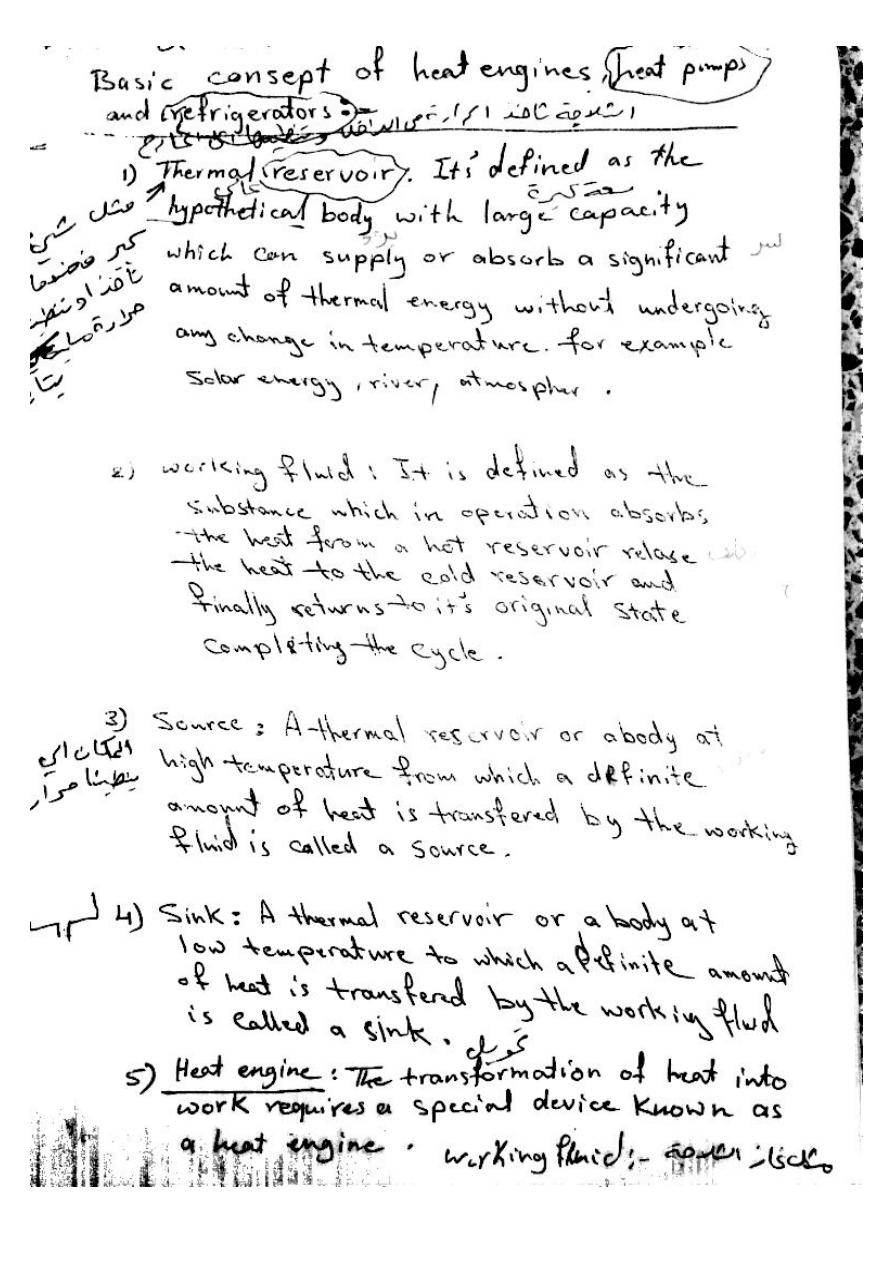 Basic consept of heat engines, heat pumps
and refrigerators:-
الثلاجة تاخذ الحرارة من الداخل
1) Thermal reservoir. It's defined as the
عالي سعة كبيرة
hypothetical body with large capacity
which can supply or absorb a significant
amount of thermal energy without undergoing
any change in temperature. for example
Solar energy, river, atmospher.
مثل شيء
كبير
تأخذ او
حرارة
2) working fluid: It is defined as the
substance which in operation absorbs
the heat from a hot reservoir relase
the heat to the cold reservoir and
finally returns to it's original state
completing the cycle.
3) Source: A thermal reservoir or a body at
high temperature from which a definite
amount of heat is transfered by the working
fluid is called a source.
المكان الي
يطينا حرار
4) Sink: A thermal reservoir or a body at
low temperature to which a definite amount
of heat is transfered by the working fluid
is called a sink.
تحويل
5) Heat engine: The transformation of heat into
work requires a special device known as
a heat engine. working fluid:- الثلاجة